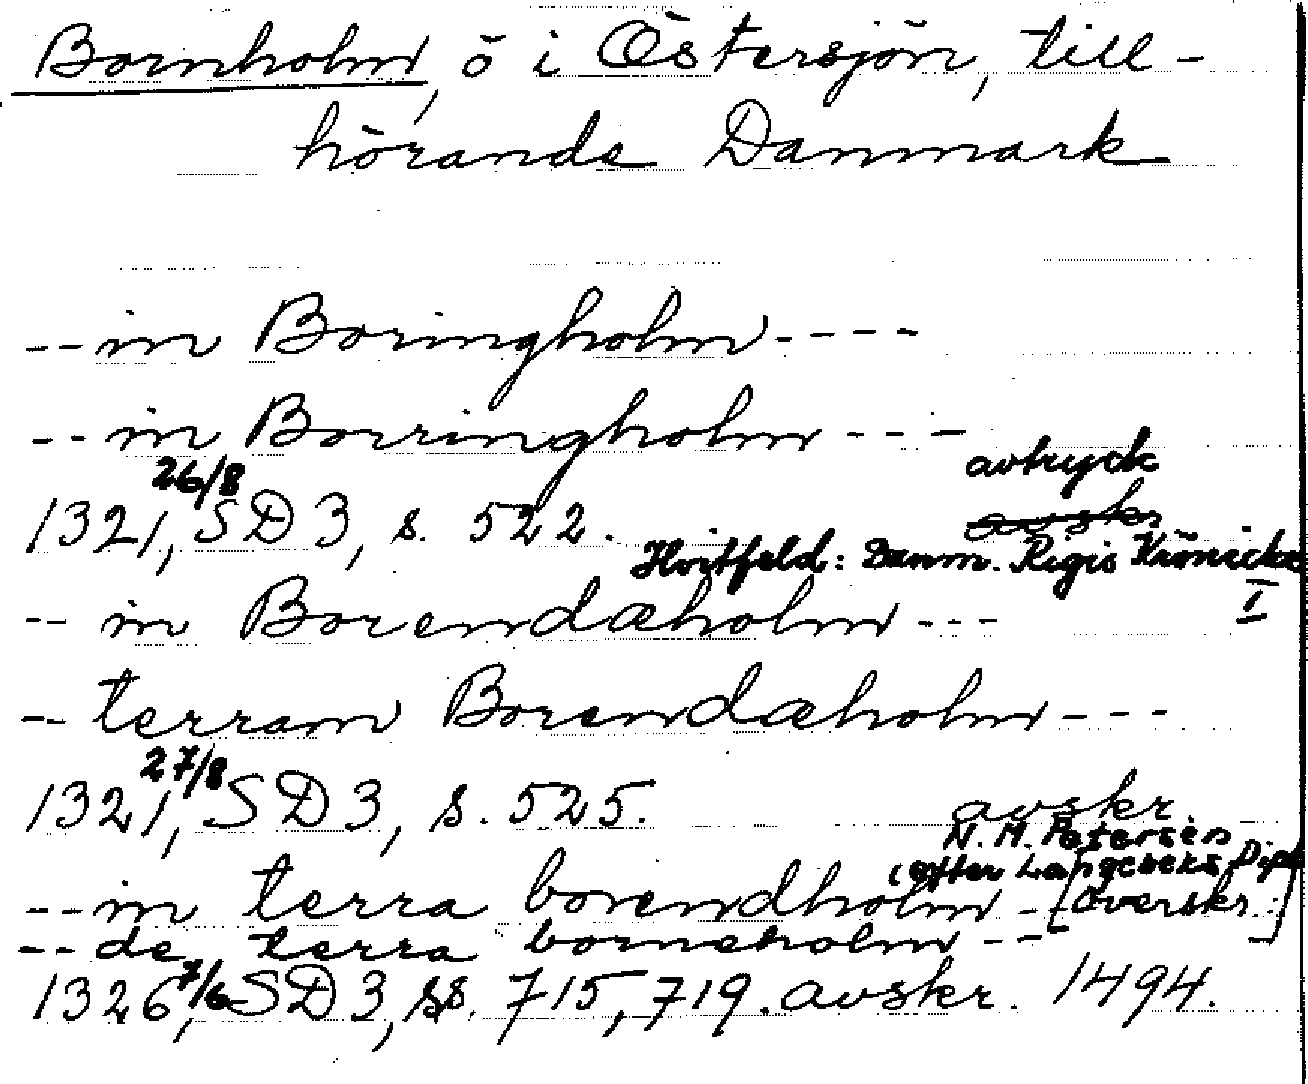 Bornholm, ö i Östersjön, till-
hörande Danmark
--in Boringholm----
--in Borringholm---
avtryck
26/8
1321, SD 3, s. 522. avskr.
Hvitfeld: Danm. Rigis Krönicke
I
-- in Borendæholm---
-- terram Borendæholm---
27/8
1321, SD 3, s. 525. avskr.
N. M. Petersen
(efter Langebeks Dipl
--in terra borendholm --[överskr.]
--de terra borneholm ---
1326, 7/6 SD 3, ss. 715, 719. avskr. 1494.